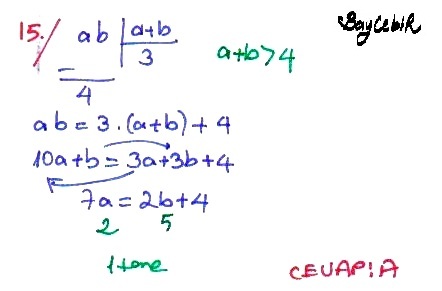 BayCebiR
15. ab | a+b
3
a+b>4
4
ab = 3.(a+b)+4
10a+b = 3a+3b+4
7a = 2b+4
2 5
1 tane
CEVAP: A